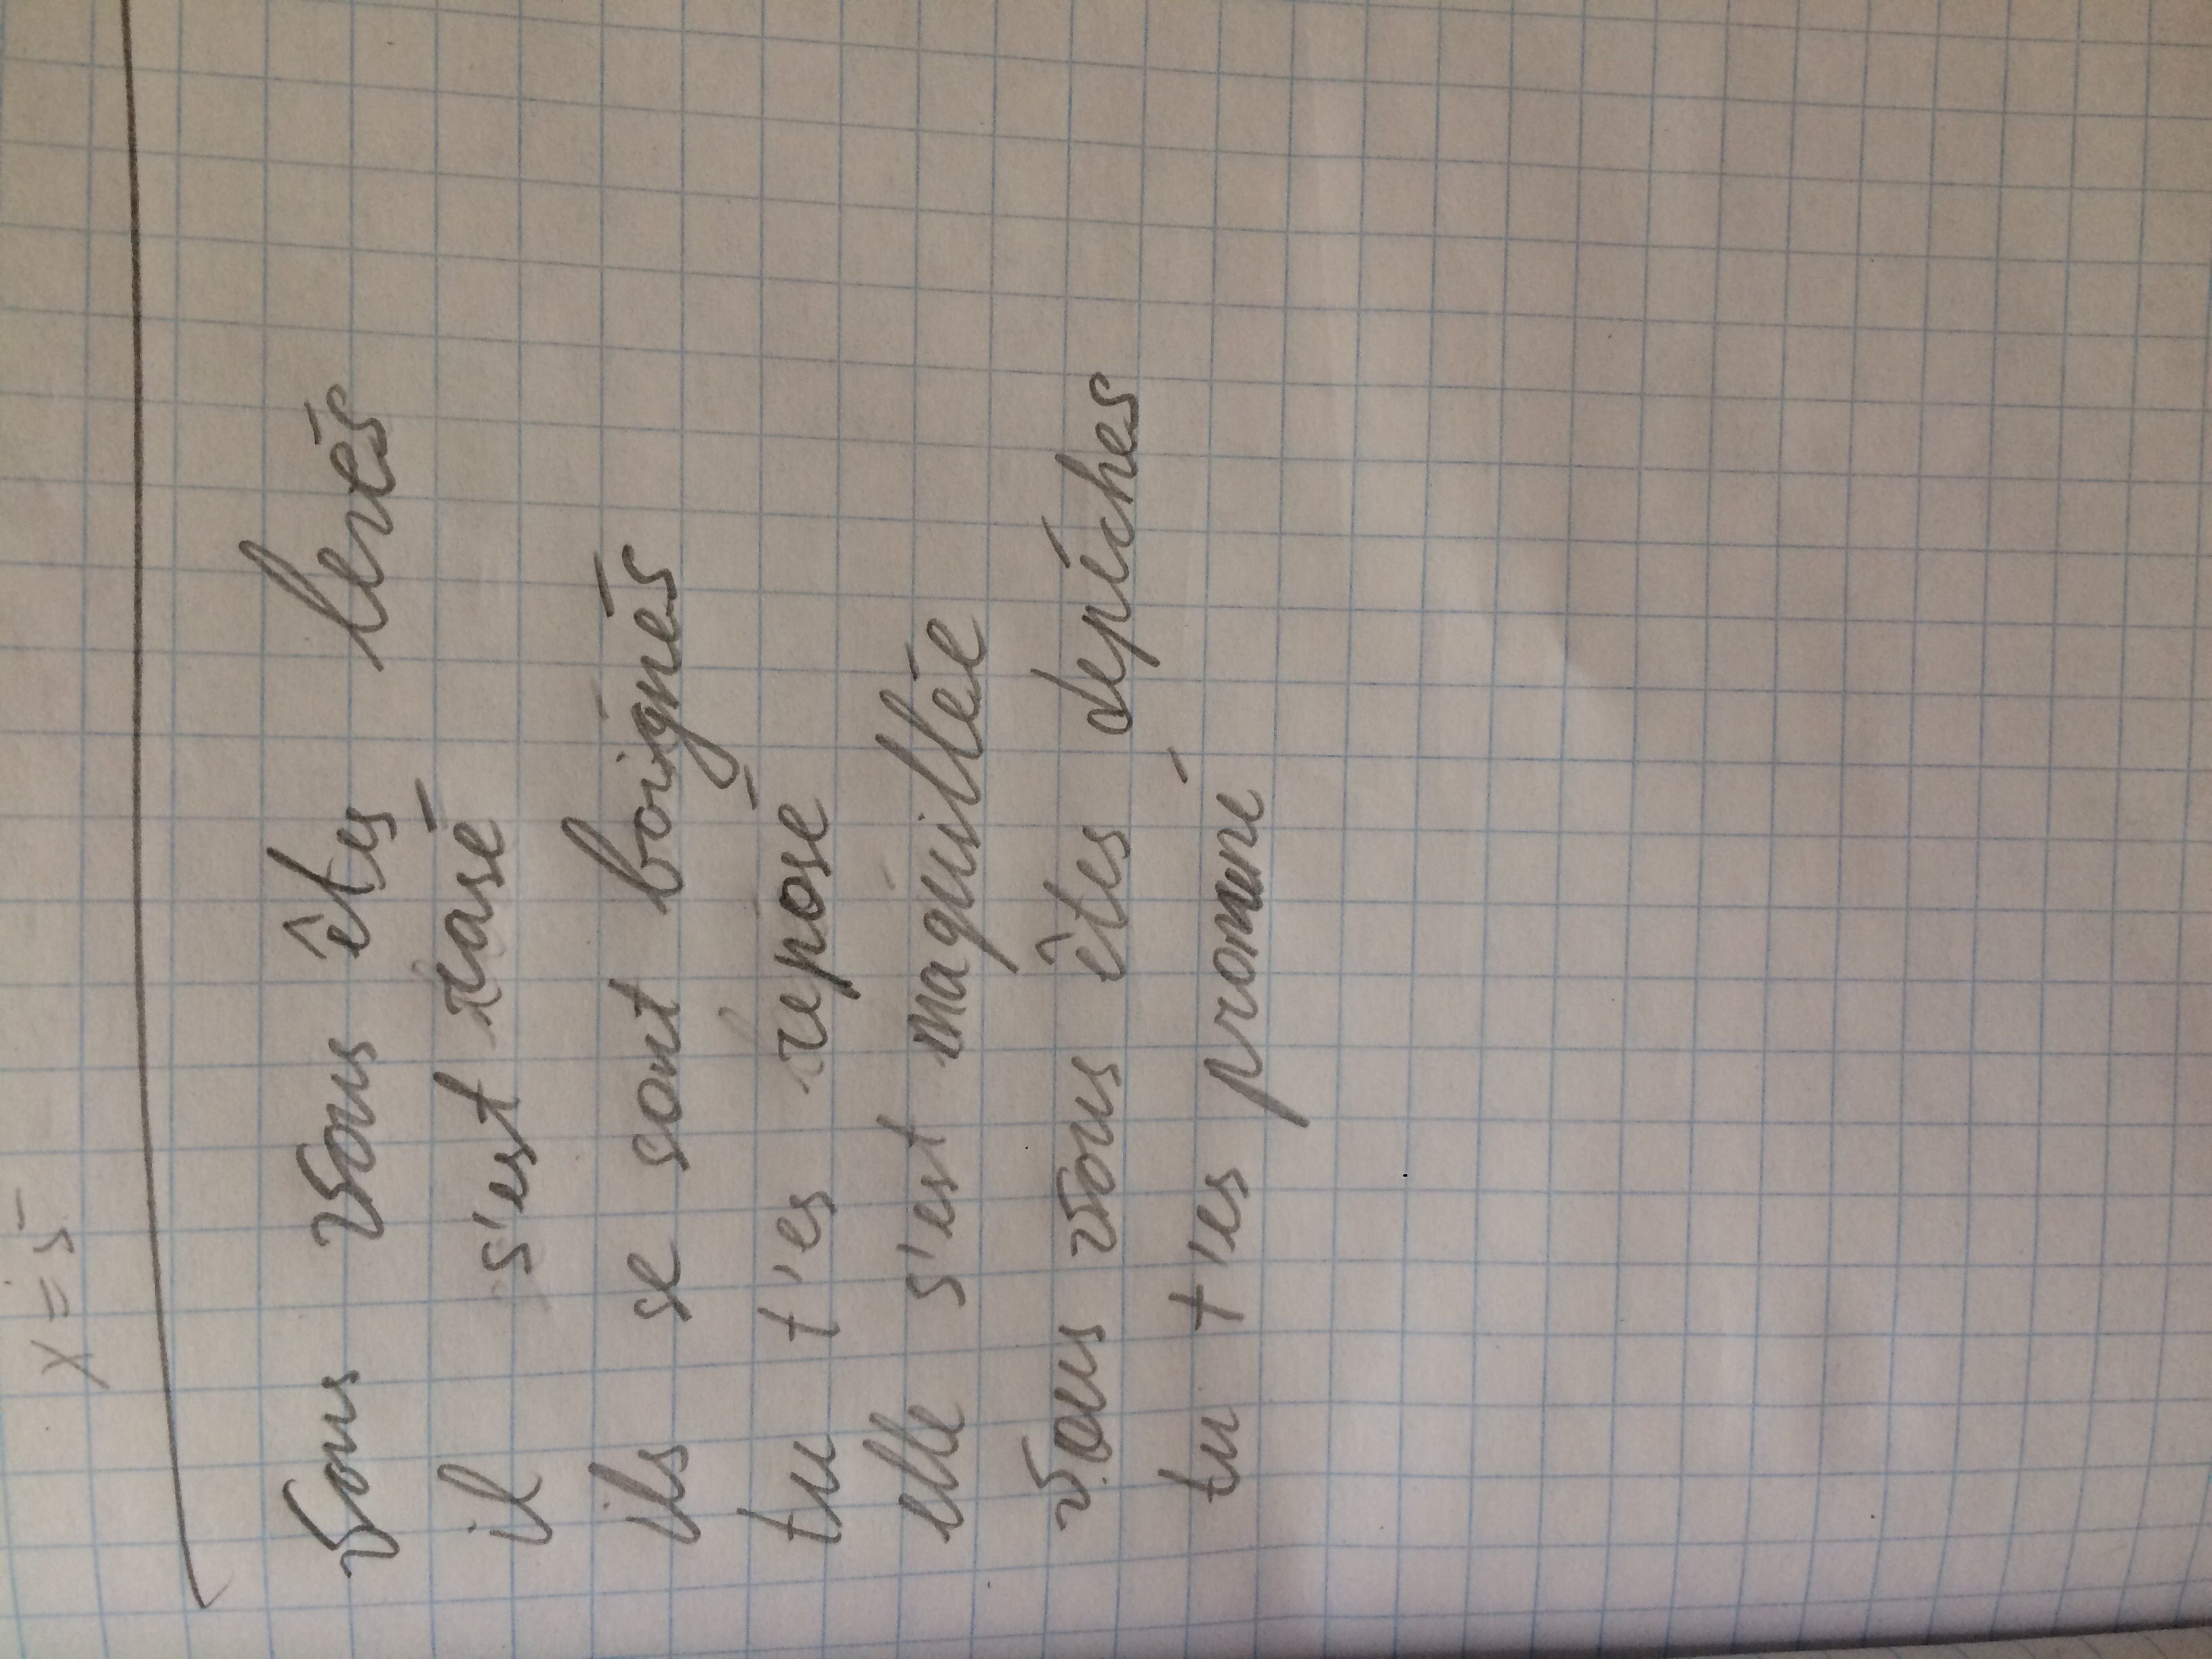 x = 5
Vous vous êtes levés
il s'est rasé
ils se sont boignés
tu t'es reposé
elle s'est maquillée
vous vous êtes depéches
tu t'es promené